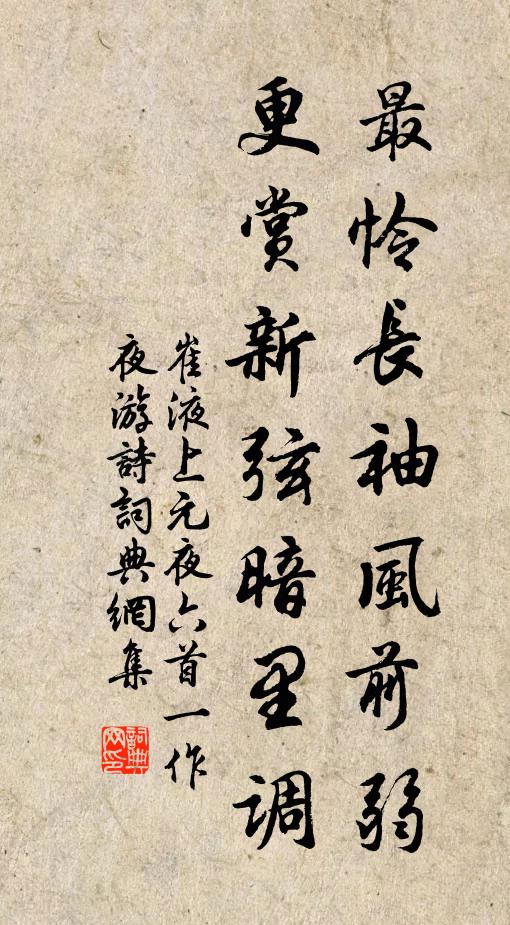 最怜長袖風前弱
更赏新弦暗里调
崔液上元夜六首一作
夜游詩詞典網集
詞典網印